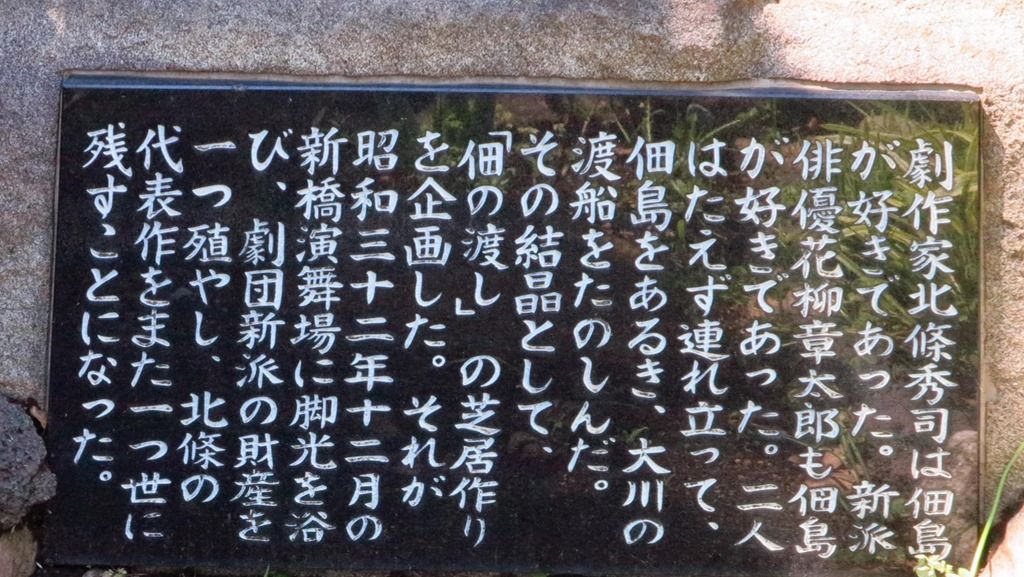 劇作家北條秀司は佃島
が好きであった。新派
俳優花柳章太郎も佃島
が好きであった。二人
はたえず連れ立って、
佃島をあるき、大川の
渡船をたのしんだ。
その結晶として、
「佃の渡し」の芝居作り
を企画した。それが
昭和三十二年十二月の
新橋演舞場に脚光を浴
び、劇団新派の財産を
一つ殖やし、北條の
代表作をまた一つ世に
残すことになった。